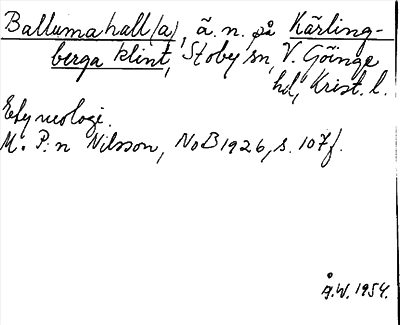 Ballumahall(a), ä. n. på Kärling-
berga klint, Stoby sn, V. Göinge
hd, Krist. l.
Etymologi.
M. P:n Nilsson, NoB 1926, s. 107 f.
Å.W. 1954.